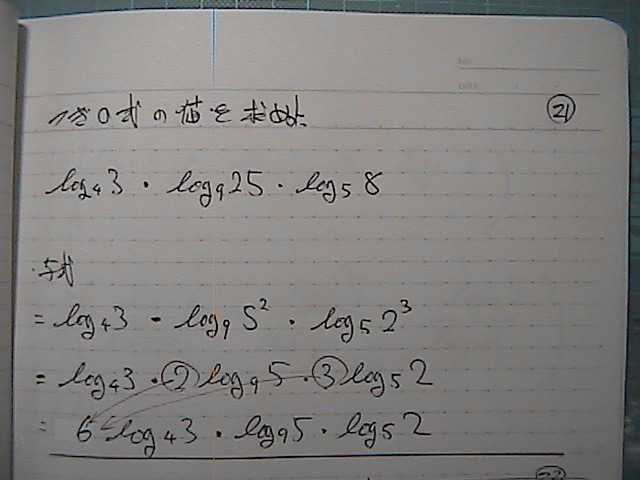 NO.
DATE
つぎの式の値を求めよ
㉑
log₄3 · log₉25 · log₅8
与式
= log₄3 · log₉5² · log₅2³
= log₄3 · ② log₉5 · ③ log₅2
= 6 log₄3 · log₉5 · log₅2